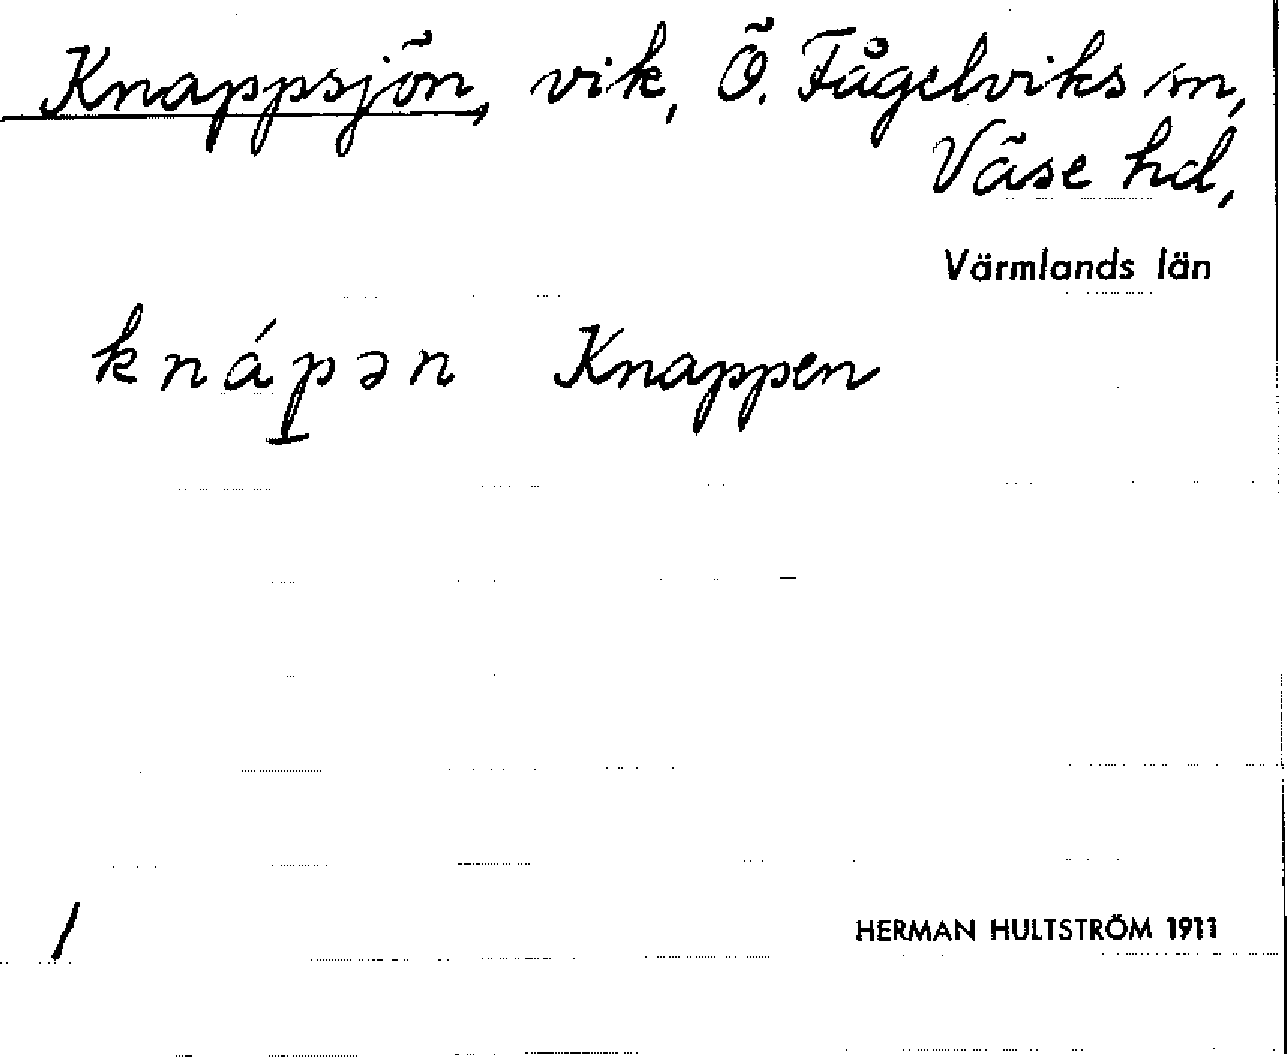 Knappsjön, vik, Ö. Fågelviks sn,
Väse hd,
Värmlands län
knápən Knappen
/
HERMAN HULTSTRÖM 1911